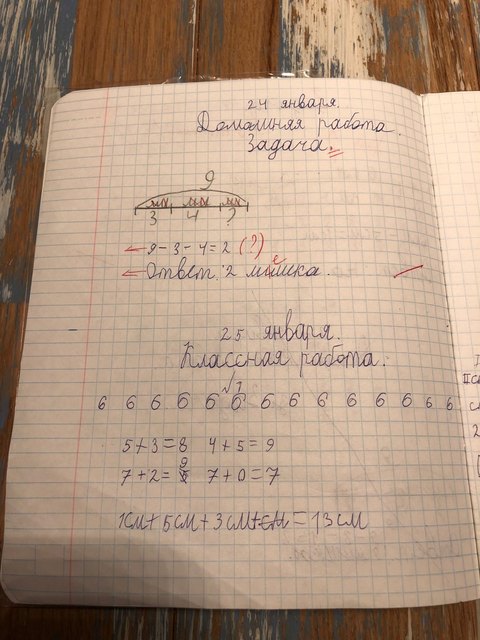 24 января.
Домашняя работа.
Задача.
9
м м м
3 4 ?
9 - 3 - 4 = 2 (?)
Ответ: 2 мешка.
25 января.
Классная работа.
6 6 6 6 6 6 6 6 6 6 6 6 6
5 + 3 = 8 4 + 5 = 9
7 + 2 = 9 7 + 0 = 7
1см + 5см + 3см + = 13см